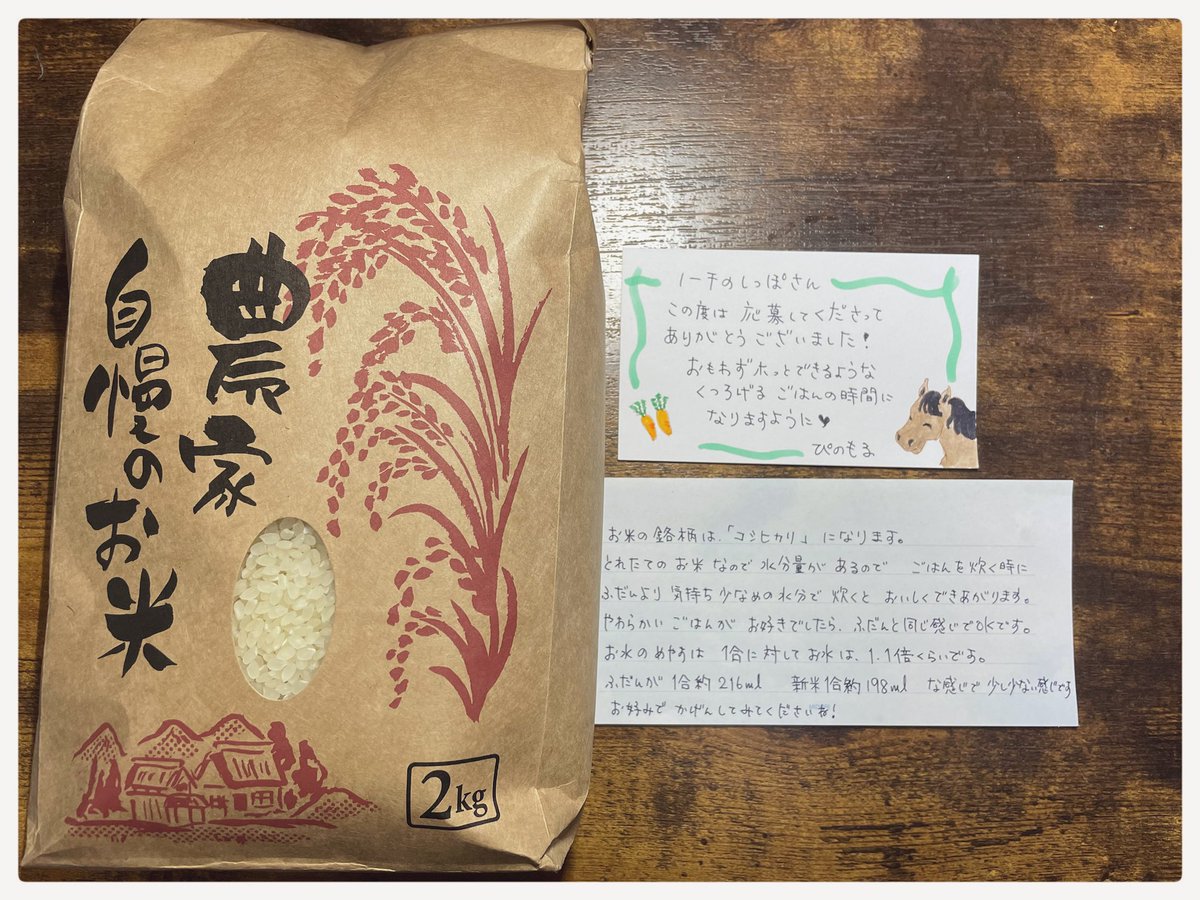 農家
自慢のお米
2kg
ノーチのしっぽさん
この度は 応募してくださって
ありがとうございました!
おもわずホッとできるような
くつろげる ごはんの時間に
なりますように♥
ぴのもる
お米の銘柄は、「コシヒカリ」になります。
とれたての お米 なので 水分量が あるので ごはんを炊く時に
ふだんより 気持ち 少なめの水分で 炊くと おいしくできあがります。
やわらかい ごはんが お好きでしたら、ふだんと同じ感じでOKです。
お水のめやすは 1合に対して お水は、1.1倍くらいです。
ふだんが 1合約216ml 新米1合約198ml な感じで 少し少ない感じです
お好みで かげんしてみてくださいね!